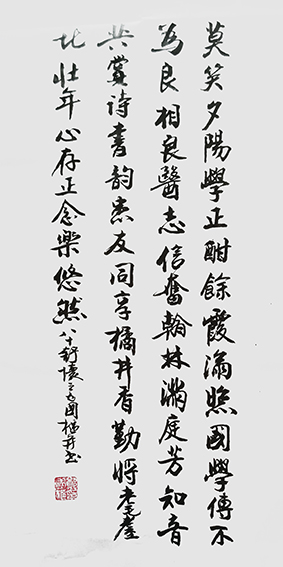 莫笑夕陽學正酣餘霞滿照國學傳不
為良相良醫志信奮翰林滿庭芳知音
共賞诗書韵友同享橘井香勤將老
比壮年心存正念樂悠然
八十舒懷之國井书